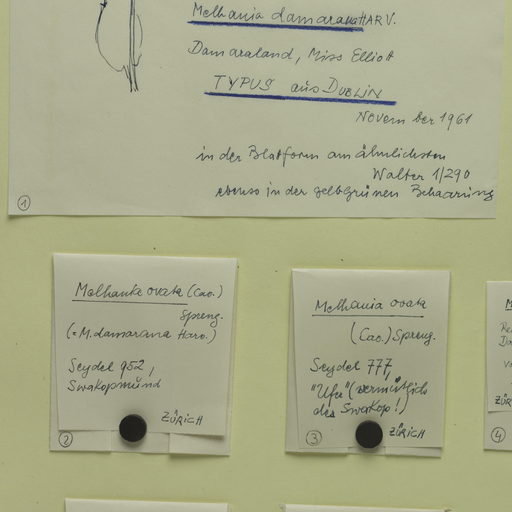 Melhania damarana HARV.
Damaraland, Miss Elliott
TYPUS aus DUBLIN
November 1961
in der Blattform am ähnlichsten
Walter 1/290
ebenso in der gelbgrünen Behaarung
1
Melhania ovata (Cav.)
Spreng.
(=M. damarana Harv.)
Seydel 952,
Swakopmünd
ZÜRICH
2
Melhania ovata
(Cav.) Spreng.
Seydel 777,
"Ufer" (vermütlich
des Swakop!)
ZÜRICH
3
4